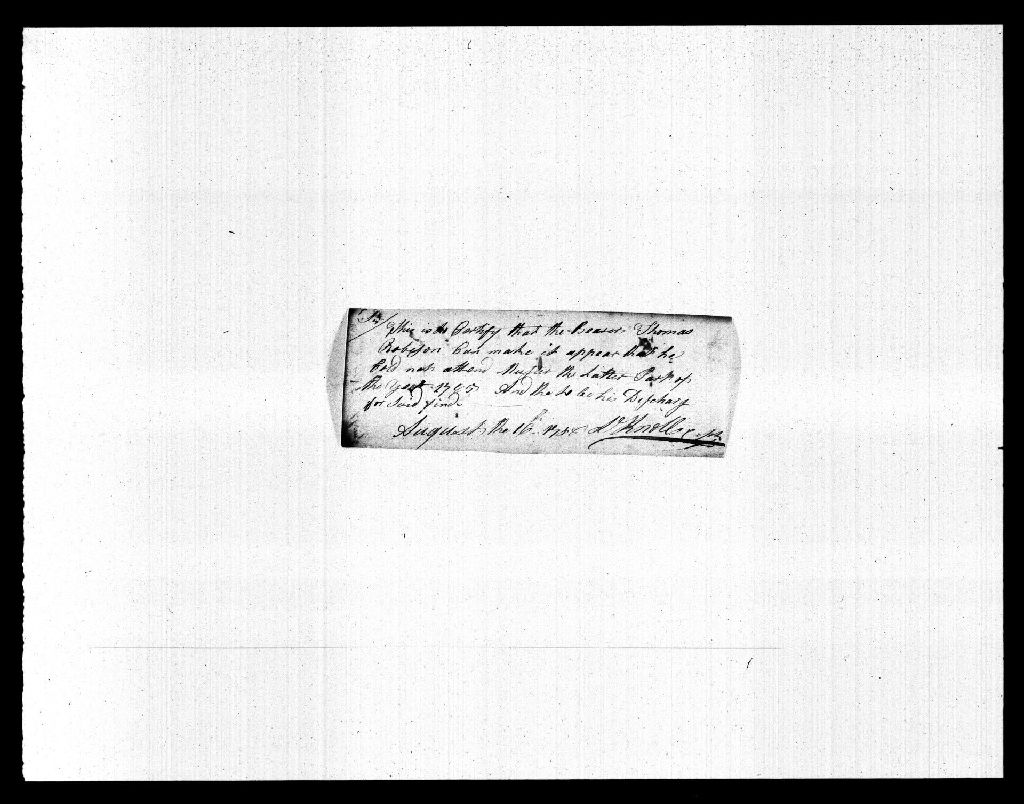 This is to Certify that the Bearor Thomas
Robison Can make it appear that he
Cold not attend Muster the Latter Part of
the year And the to be his Discharg
for Said find
August the 16